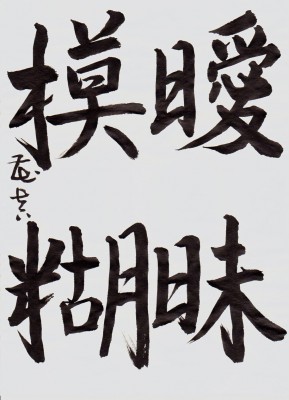 曖昧
模糊